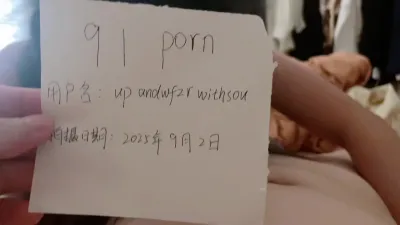 91 porn
用户名: up undwfzr withsou
拍摄日期: 2025年9月2日